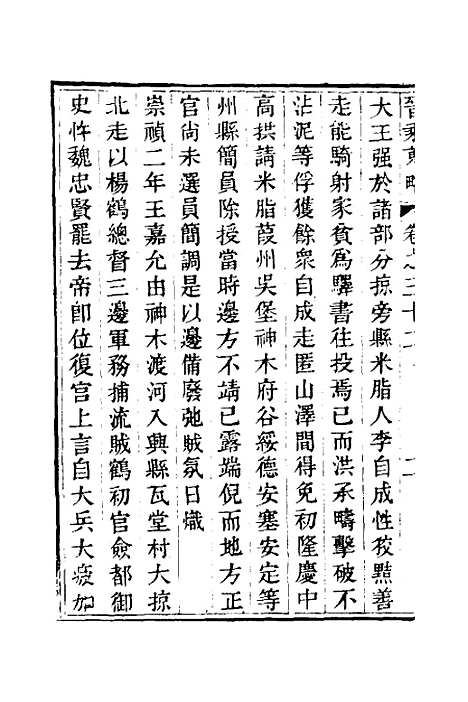 晉乘蒐略 卷之三十二 二
大王强於諸部分掠旁縣米脂人李自成性狡黠善
走能騎射家貧爲驛書往投焉已而洪承疇擊破不
沾泥等俘獲餘衆自成走匿山澤間得免初隆慶中
高拱請米脂葭州吳堡神木府谷綏德安塞安定等
州縣簡員除授當時邊方不靖已露端倪而地方正
官尚未選員簡調是以邊備廢弛賊氛日熾
崇禎二年王嘉允由神木渡河入興縣瓦堂村大掠
北走以楊鶴總督三邊軍務捕流賊鶴初官僉都御
史忤魏忠賢罷去帝卽位復官上言自大兵大疲加